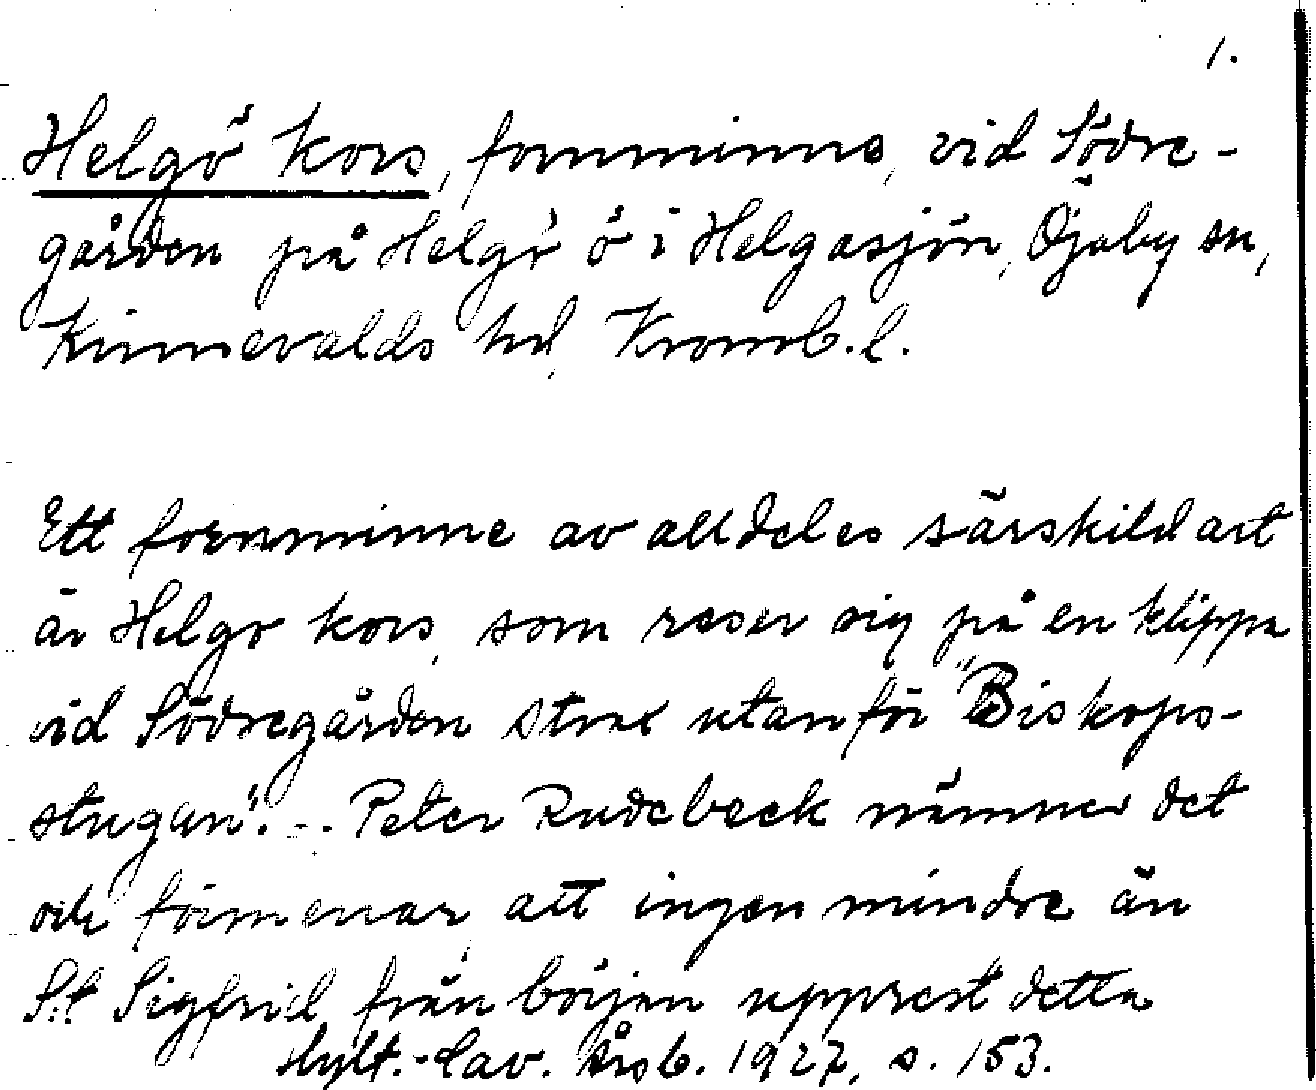 1.
Helgö kors, fornminne, vid Södre-
gården på Helgö ö i Helgasjön, Öjaby sn,
Kinnevalds hd, Kronob. l.
Ett fornminne av alldeles särskild art
är Helgö kors, som reser sig på en klippa
vid Södregården strax utanför "Biskops-
stugan". - . Peter Rudebeck nämner det
och förmenar, att ingen mindre än
S:t Sigfrid från början upprest detta
Hylt.-Cav. Årsb. 1927, s. 153.